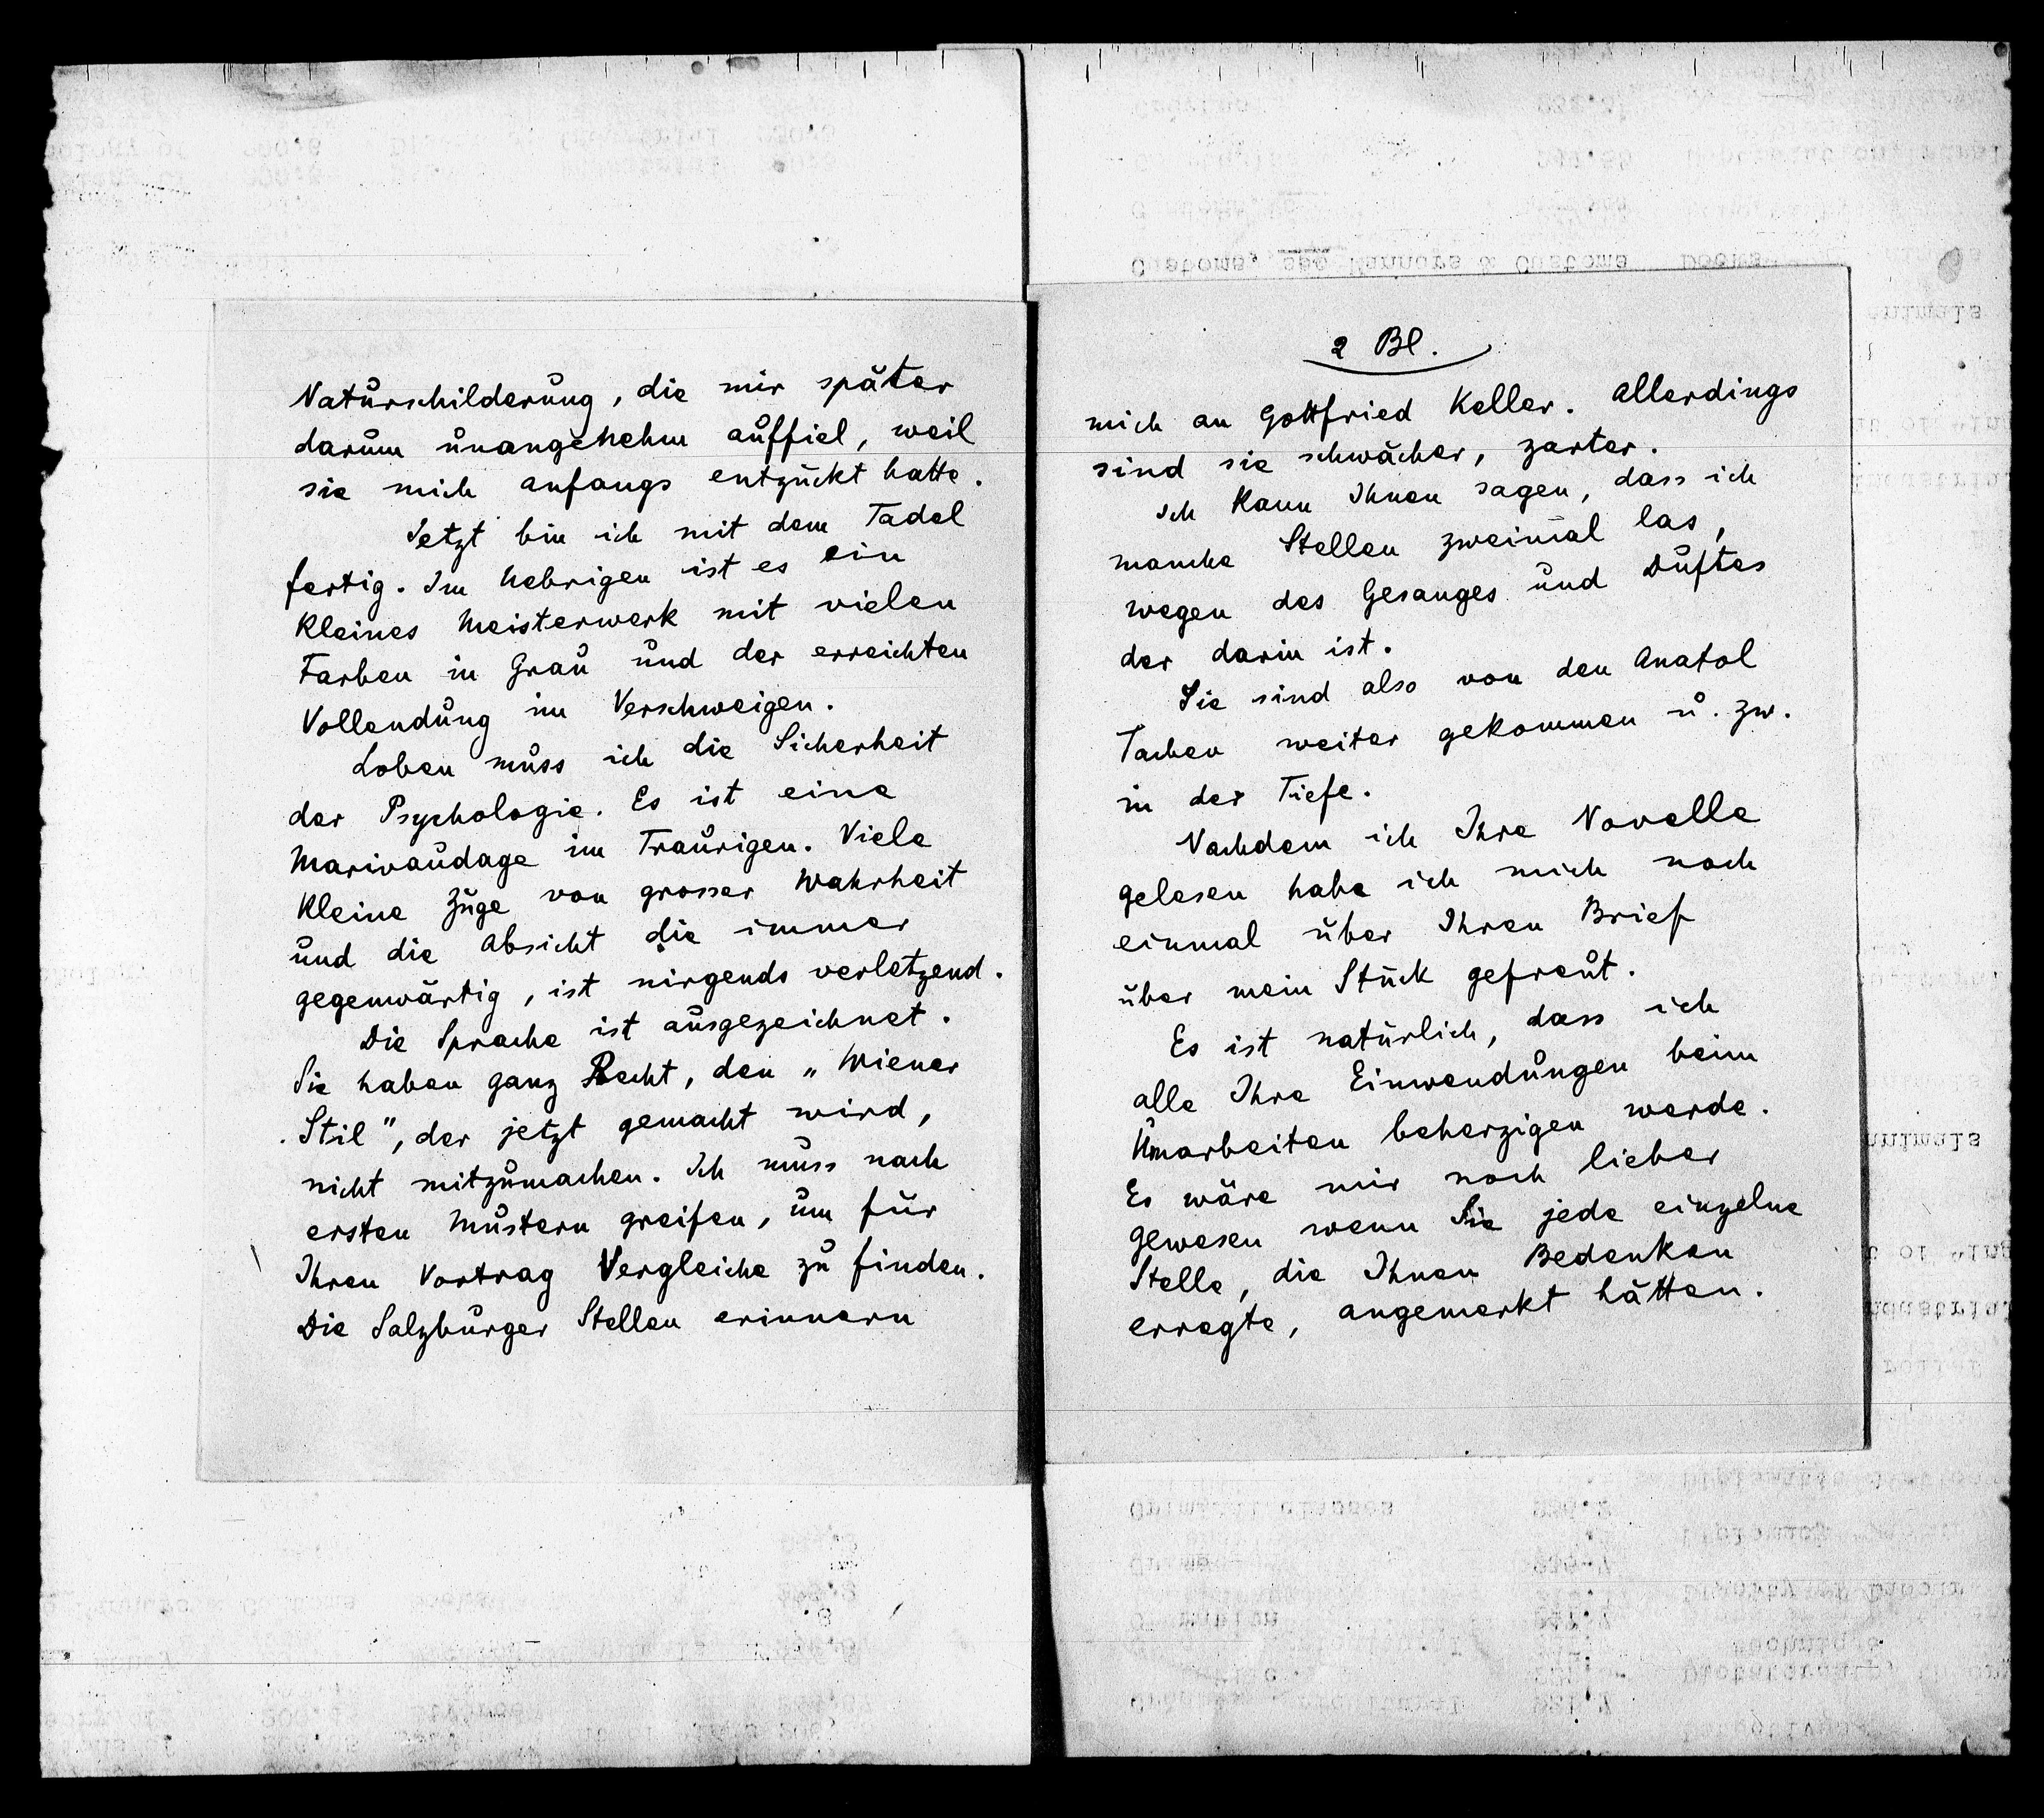 Naturschilderung, die mir später
darum unangenehm auffiel, weil
sie mich anfangs entzückt hatte.
Jetzt bin ich mit dem Tadel
fertig. Im Uebrigen ist es ein
kleines Meisterwerk mit vielen
Farben in Grau und der erreichten
Vollendung im Verschweigen.
Loben muss ich die Sicherheit
der Psychologie. Es ist eine
Marivaudage im Traurigen. Viele
kleine Züge von grosser Wahrheit
und die Absicht die immer
gegenwärtig, ist nirgends verletzend.
Die Sprache ist ausgezeichnet.
Sie haben ganz Recht, den „Wiener
Stil", der jetzt gemacht wird,
nicht mitzumachen. Ich muss nach
ersten Mustern greifen, um für
Ihren Vortrag Vergleiche zu finden.
Die Salzburger Stellen erinnern
2 Bl.
mich an Gottfried Keller. Allerdings
sind sie schwächer, zarter.
Ich kann Ihnen sagen, dass ich
manche Stellen zweimal las,
wegen des Gesanges und Duftes
der darin ist.
Sie sind also von den Anatol
Sachen weiter gekommen u. zw.
in der Tiefe.
Nachdem ich Ihre Novelle
gelesen habe ich mich noch
einmal über Ihren Brief
über mein Stück gefreut.
Es ist natürlich, dass ich
alle Ihre Einwendungen beim
Umarbeiten beherzigen werde.
Es wäre mir noch lieber
gewesen wenn Sie jede einzelne
Stelle, die Ihnen Bedenken
erregte, angemerkt hätten.